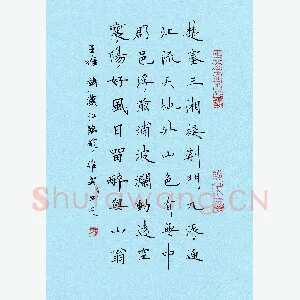 楚塞三湘接荆門九派通
江流天地外山色有無中
郡邑浮前浦波瀾動遠空
襄陽好風日留醉與山翁
王維詩漢江臨眺
Shufawang.CN